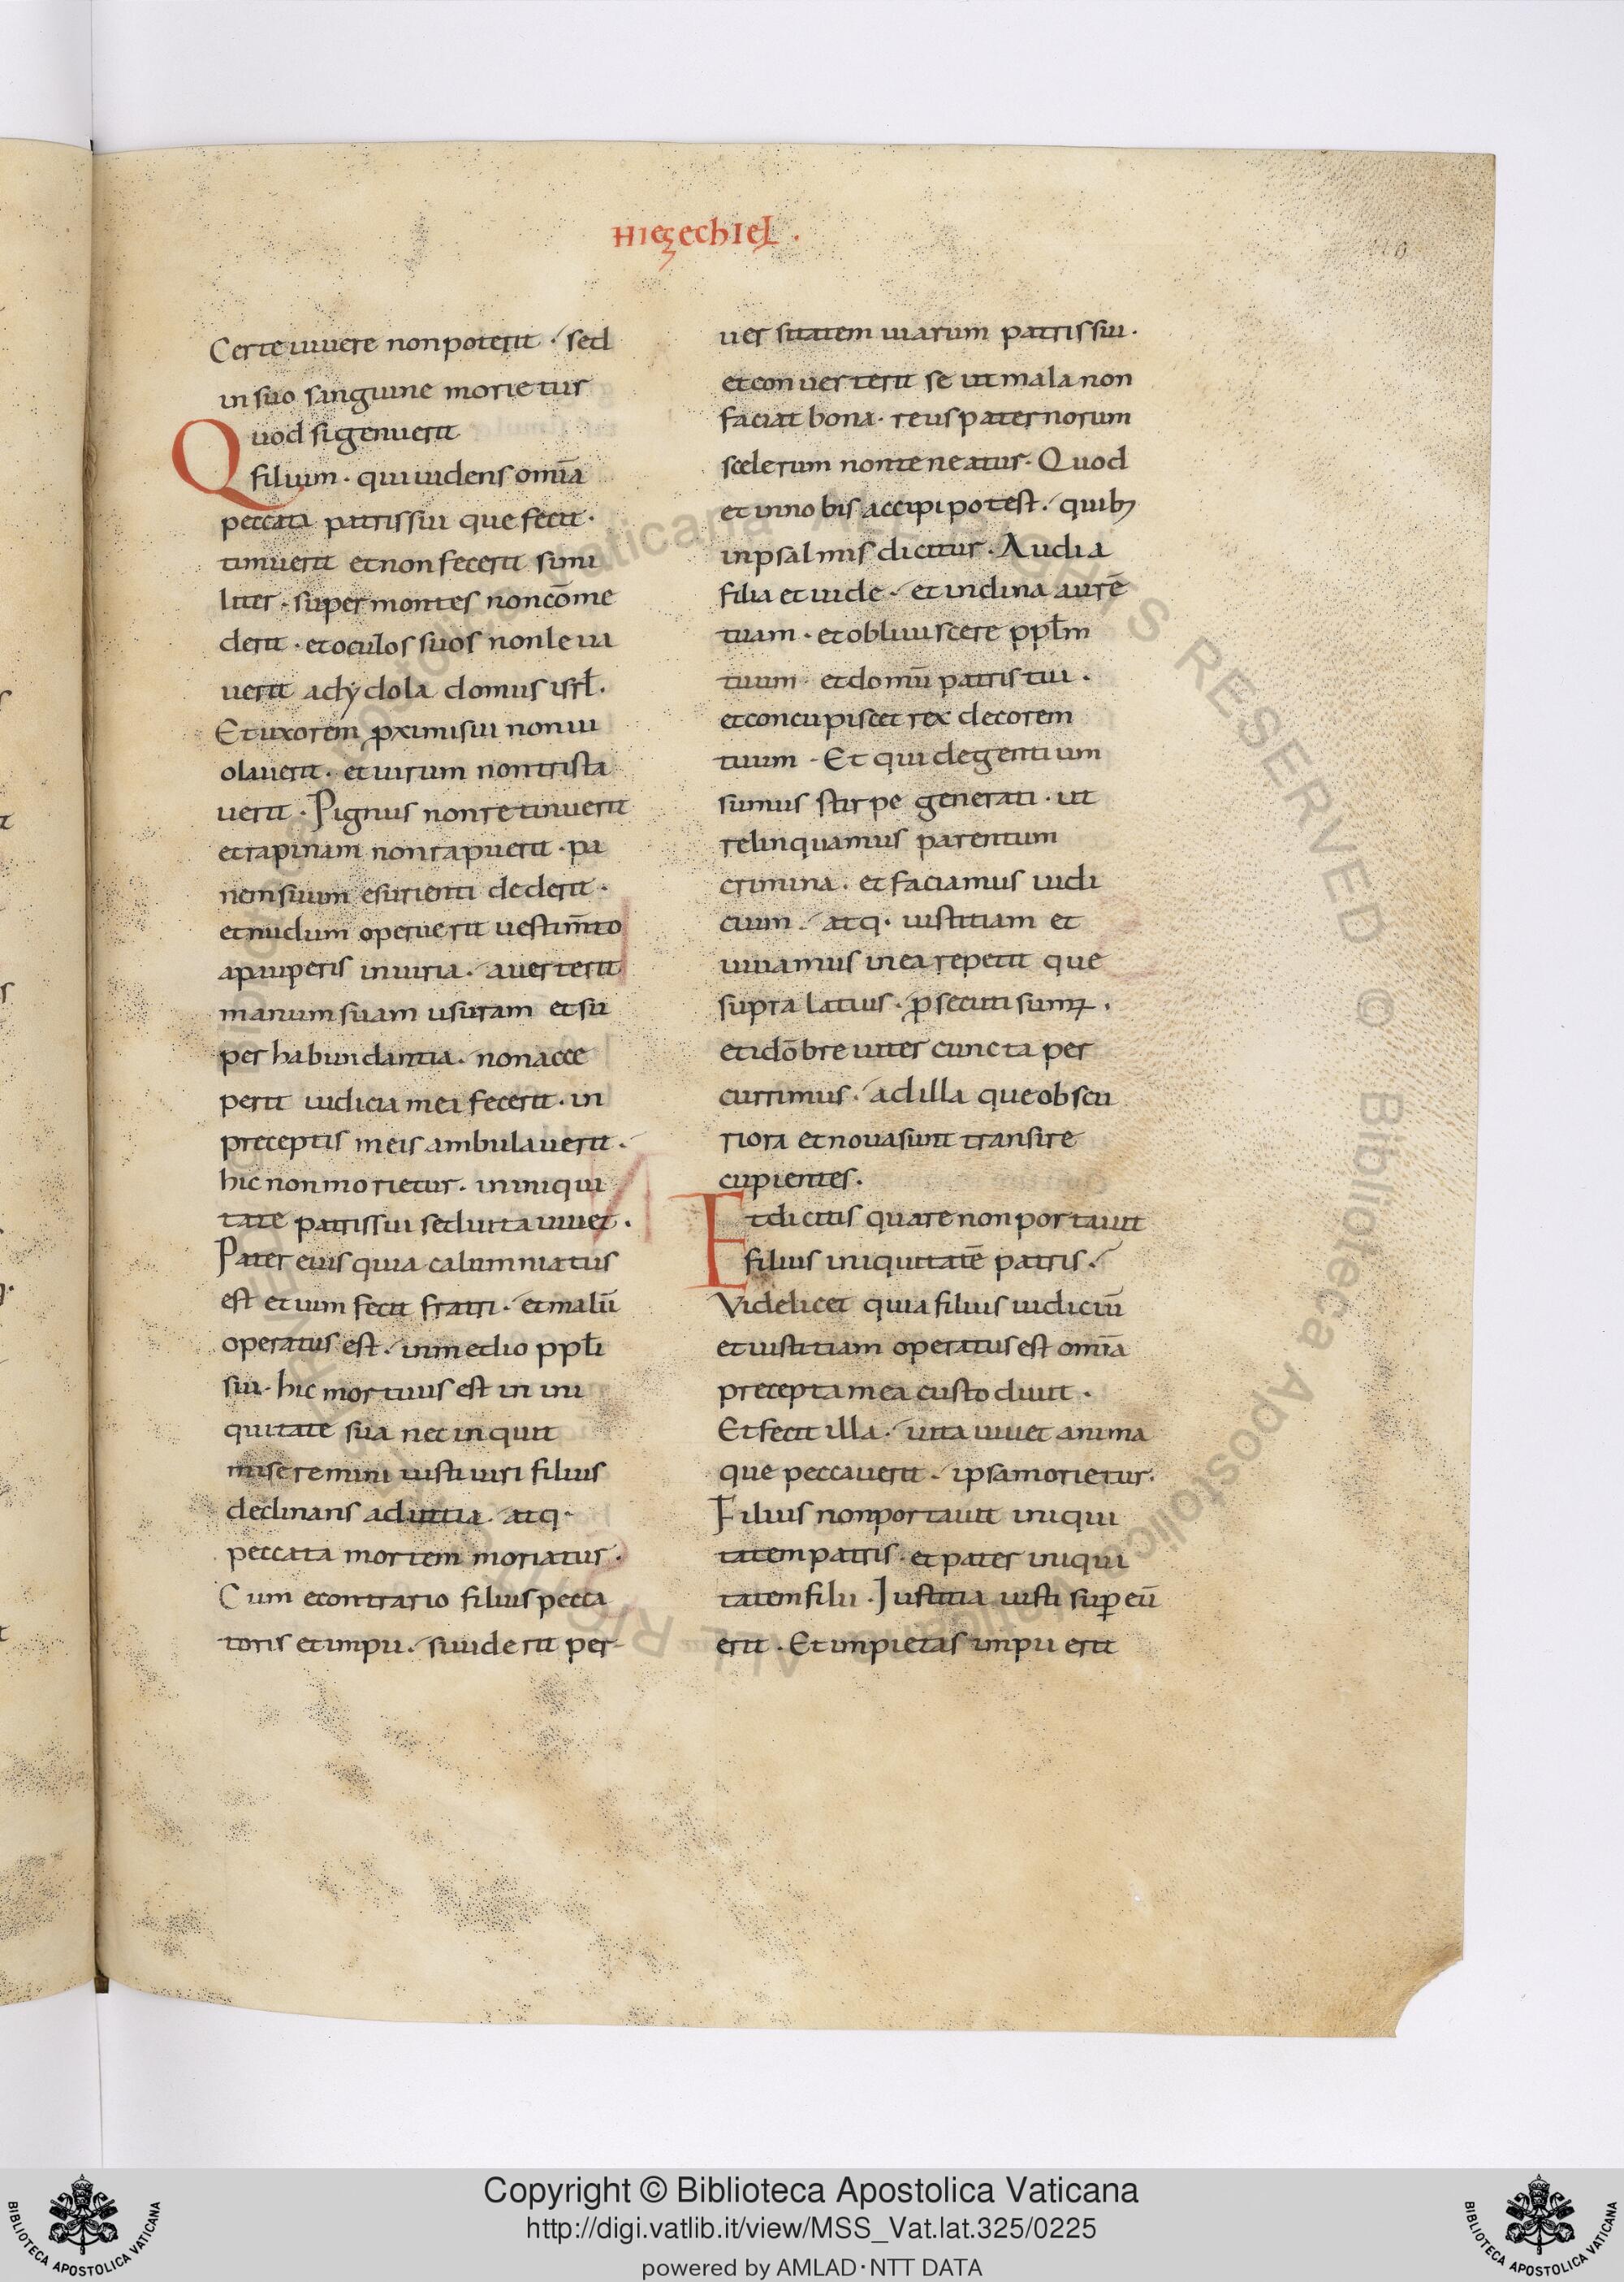 HIEZECHIEL.
Certe uiuere non poterit · sed
in suo sanguine morietur
Quod si genuerit
filium · qui uidens om̄ia
peccata patris sui que fecit ·
timuerit et non fecerit simi
liter · super montes non cōme
derit · et oculos suos non leua
uerit ad ydola domus isrł.
Et uxorem ꝓximi sui non ui
olauerit · et uirum non trista
uerit · Pignus non retinuerit
et rapinam non rapuerit · pa
nem suum esurienti dederit ·
et nudum operuerit uestim̄to
a pauperis iniuria · auerterit
manum suam usuram et su
per habundantia · non acce
perit iudicia mei fecerit · in
preceptis meis ambulauerit ·
hic non morietur · in iniqui
tate patris sui sed uita uiuet ·
Pater eius quia calumniatus
est et uim fecit fratri · et malū
operatus est · in medio ppłi
sui · hic mortuus est in ini
quitate sua nec inquit
miseremini iusti uiri filius
declinans ad uitia · atq·
peccata mortem moriatur ·
Cum econtrario filius pecca
toris et impii · si uiderit per-
uersitatem uiarum patris sui ·
et conuerterit se ut mala non
faciat bona · reus paternorum
scelerum non teneatur · Quod
et in nobis accipi potest · quibꝫ
in psalmis dicitur · Audi a
filia et uide · et inclina aurē
tuam · et obliuiscere ppłm
tuum · et domū patris tui ·
et concupiscet rex decorem
tuum · Et qui de gentium
sumus stirpe generati · ut
relinquamus parentum
crimina · et faciamus iudi
cium · atq· iustitiam et
uiuamus in ea repetit que
supra latius · ꝓsecuti sumꝰ ·
et idō breuiter cuncta per
currimus · ad illa que obscu
riora et noua sunt transire
cupientes.
Et dicitis quare non portauit
filius iniquitatē patris ·
Videlicet quia filius iudiciū
et iustitiam operatus est om̄ia
precepta mea custodiuit ·
Et fecit illa · uita uiuet anima
que peccauerit · ipsa morietur ·
Filius non portauit iniqui
tatem patris · et pater iniqui
tatem filii · Iustitia iusti suꝑ eū
erit · Et impietas impii erit
Copyright © Biblioteca Apostolica Vaticana
http://digi.vatlib.it/view/MSS_Vat.lat.325/0225
powered by AMLAD·NTT DATA
BIBLIOTECA APOSTOLICA VATICANA
BIBLIOTECA APOSTOLICA VATICANA